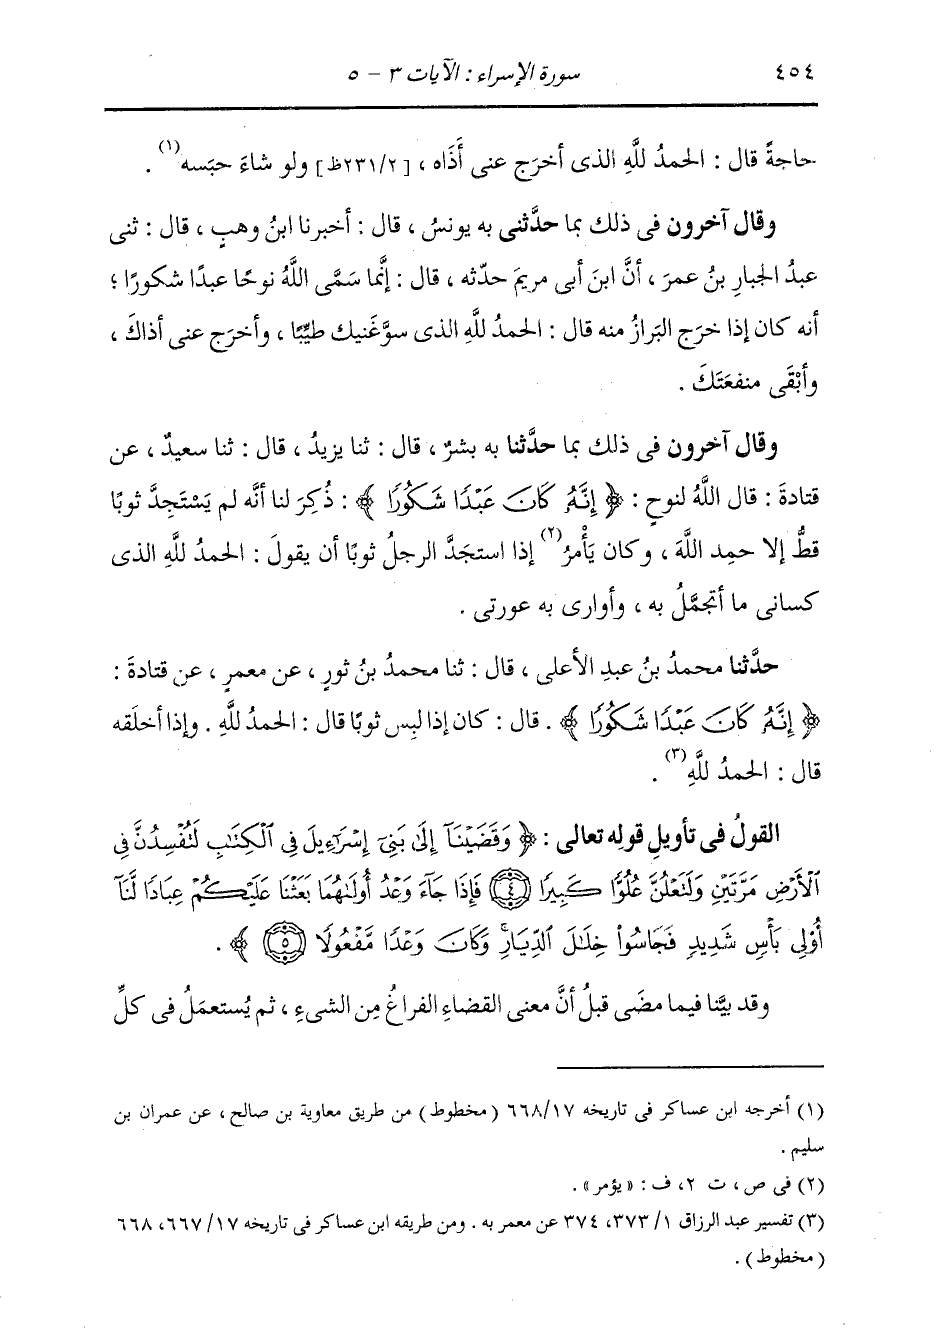 ٤٥٤ سورة الإسراء : الآيات ٣ - ٥
حاجةً قال : الحمدُ للَّهِ الذى أخرَج عنى أَذَاه ، [ ٢٣١/٢ظ ] ولو شاءَ حبَسه(١) .
وقال آخرون فى ذلك بما حدَّثنى به يونسُ ، قال : أخبرنا ابنُ وهبٍ ، قال : ثنى
عبدُ الجبارِ بنُ عمرَ ، أنَّ ابنَ أبى مريمَ حدّثه ، قال : إنَّما سَمَّى اللَّهُ نوحًا عبدًا شكورًا ؛
أنه كان إذا خرَج البَرازُ منه قال : الحمدُ للَّهِ الذى سوَّغَنيك طيِّبًا ، وأخرَج عنى أذاكَ ،
وأَبْقَى منفعَتَكَ .
وقال آخرون فى ذلك بما حدَّثنا به بشرٌ ، قال : ثنا يزيدُ ، قال : ثنا سعيدٌ ، عن
قتادةَ : قال اللَّهُ لنوحٍ : ﴿ إِنَّهُ كَانَ عَبْدًا شَكُورًا ﴾ : ذُكِرَ لنا أنَّه لم يَسْتَجِدَّ ثوبًا
قطُّ إلا حمِد اللَّهَ ، وكان يَأْمرُ(٢) إذا استجَدَّ الرجلُ ثوبًا أن يقولَ : الحمدُ للَّهِ الذى
كسانى ما أتجمَّلُ به ، وأوارى به عورتى .
حدَّثنا محمدُ بنُ عبدِ الأعلى ، قال : ثنا محمدُ بنُ ثورٍ ، عن معمرٍ ، عن قتادةَ :
﴿ إِنَّهُ كَانَ عَبْدًا شَكُورًا ﴾ . قال : كان إذا لبِس ثوبًا قال : الحمدُ للَّهِ . وإذا أخلَقه
قال : الحمدُ للَّهِ(٣) .
القولُ فى تأويلِ قولِه تعالى : ﴿ وَقَضَيْنَآ إِلَىٰ بَنِىٓ إِسْرَٰٓءِيلَ فِى ٱلْكِتَٰبِ لَتُفْسِدُنَّ فِى
ٱلْأَرْضِ مَرَّتَيْنِ وَلَتَعْلُنَّ عُلُوًّا كَبِيرًا ٤ فَإِذَا جَآءَ وَعْدُ أُولَىٰهُمَا بَعَثْنَا عَلَيْكُمْ عِبَادًا لَّنَآ
أُوْلِى بَأْسٍ شَدِيدٍ فَجَاسُوا۟ خِلَٰلَ ٱلدِّيَارِ ۚ وَكَانَ وَعْدًا مَّفْعُولًا ٥ ﴾ .
وقد بيَّنا فيما مضَى قبلُ أنَّ معنى القضاءِ الفراغُ مِن الشىءِ ، ثم يُستعمَلُ فى كلِّ
(١) أخرجه ابن عساكر فى تاريخه ٦٦٨/١٧ ( مخطوط ) من طريق معاوية بن صالح ، عن عمران بن
سليم .
(٢) فى ص ، ت ٢، ف : « يؤمر » .
(٣) تفسير عبد الرزاق ١/ ٣٧٣، ٣٧٤ عن معمر به . ومن طريقه ابن عساكر فى تاريخه ١٧/ ٦٦٧، ٦٦٨
( مخطوط ) .